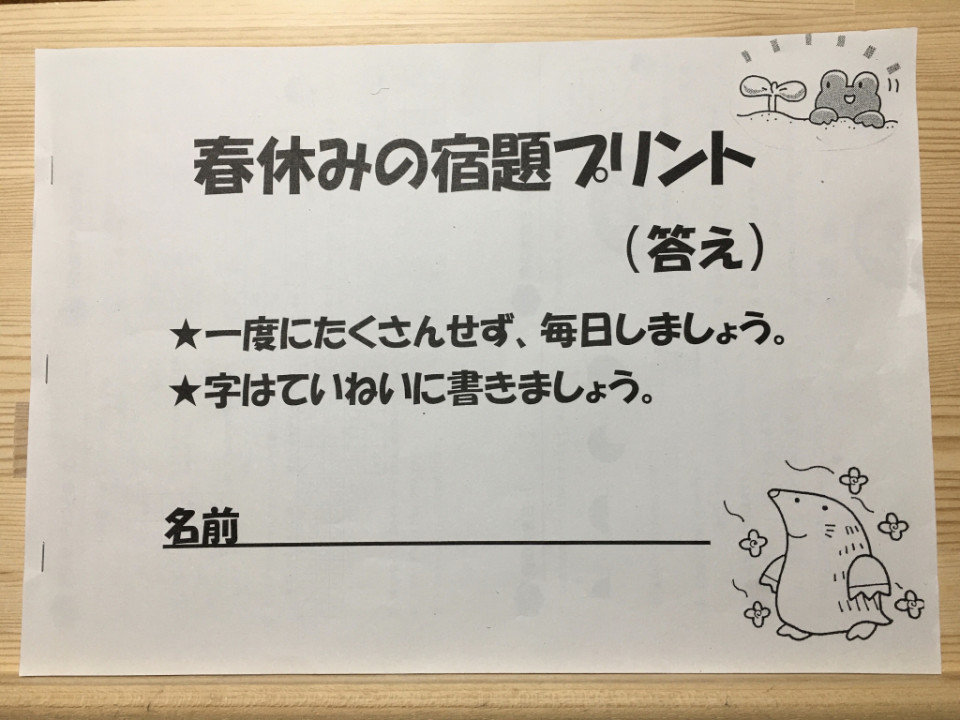 春休みの宿題プリント
（答え）
★一度にたくさんせず、毎日しましょう。
★字はていねいに書きましょう。
名前